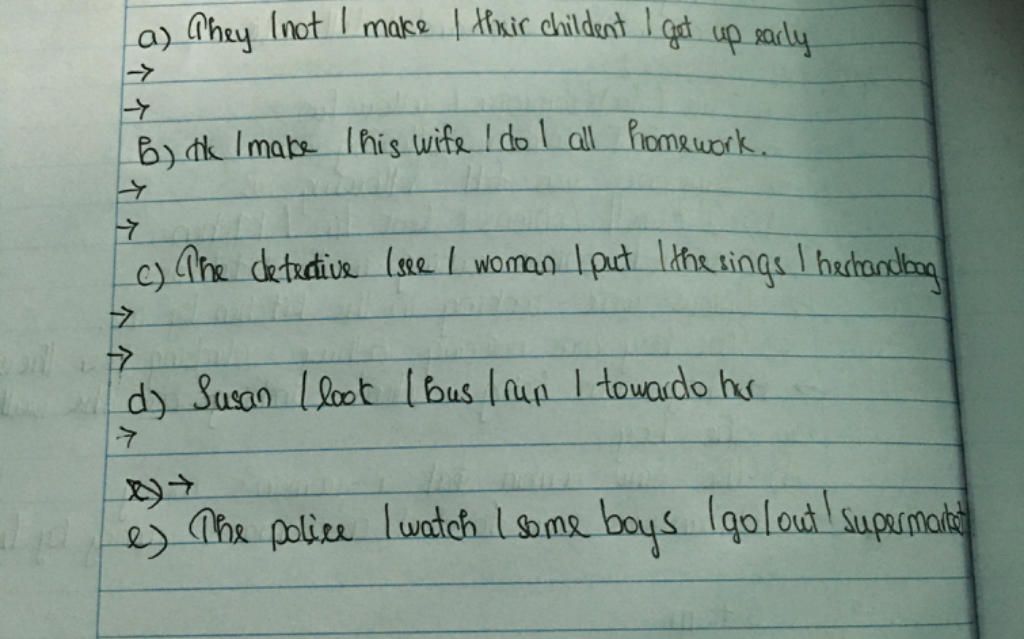 a) They / not / make / their childent / get up early
→
→
b) He / make / his wife / do / all homework.
→
→
c) The detective / see / woman / put / the sings / her handbag
→
→
d) Susan / look / bus / run / towards her
→
→
e) The police / watch / some boys / go / out / supermarket